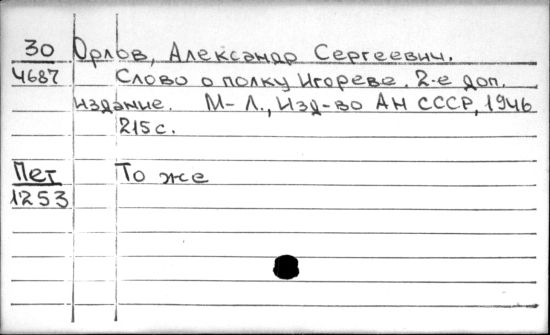 30 Орлов, Александр Сергеевич.
4687 Слово о полку Игореве. 2-е доп.
издание. М-Л., Изд-во АН СССР, 1946
215 с.
Пет То же
1253